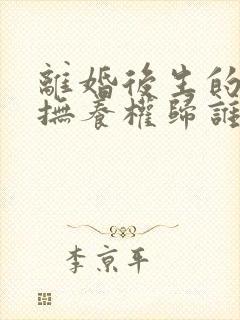 離婚後生的
撫養權歸誰
李京平